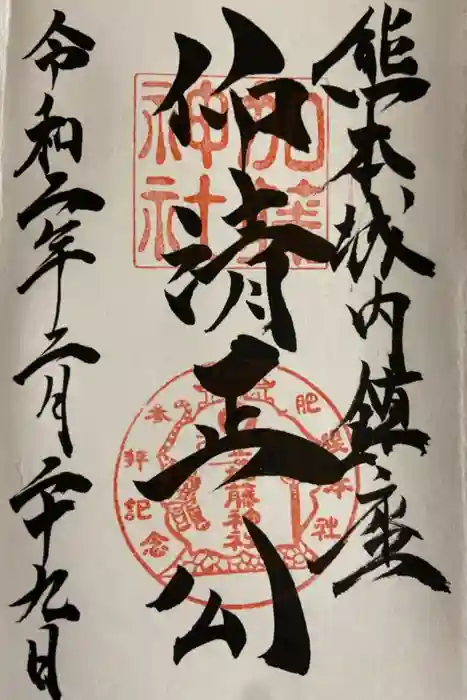 熊本城内鎮座
仰清正公
令和二年二月二十九日
加藤神社
肥
本社
参拝記念
加藤神社